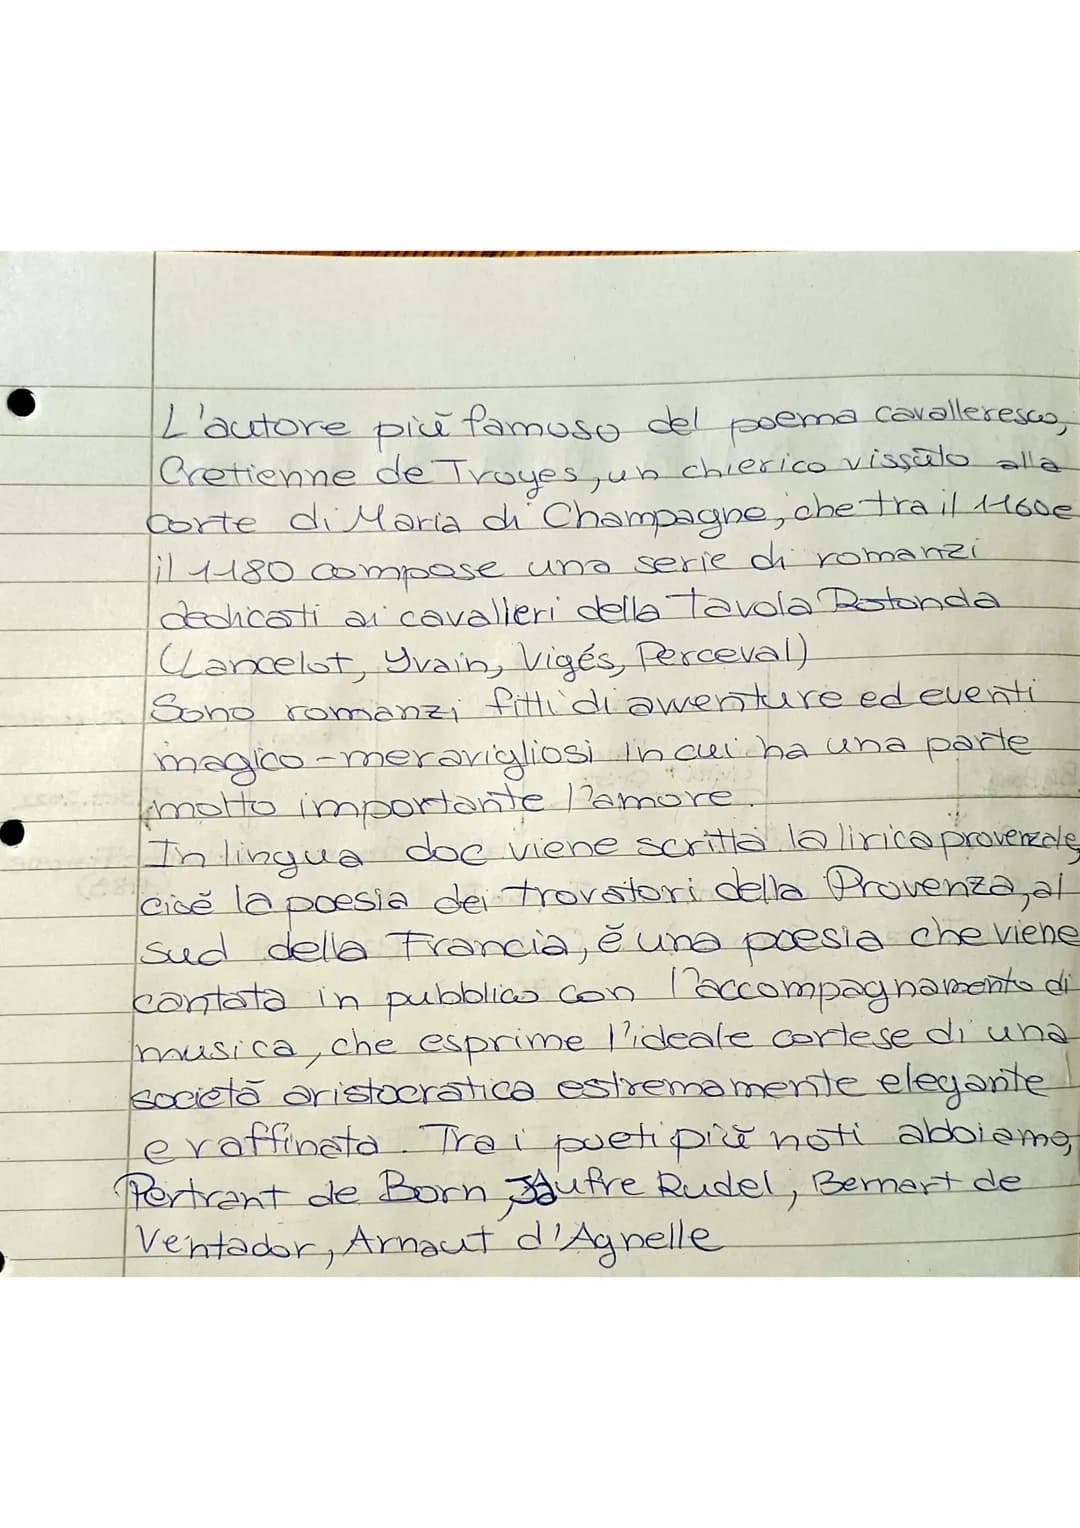 L'autore più famoso del poema cavalleresco,
Cretienne de Troyes, un chierico vissuto alla
corte di Maria di Champagne, che tra il 1160 e
il 1180 compose una serie di romanzi
dedicati ai cavalleri della Tavola Rotonda
(Lancelot, Yvain, Vigés, Perceval)
Sono romanzi fitti di avventure ed eventi
magico-meravigliosi in cui ha una parte
molto importante l'amore.
In lingua doc viene scritta la lirica provenzale,
cioé la poesia dei trovatori della Provenza, al
sud della Francia, è una poesia che viene
cantata in pubblico con l'accompagnamento di
musica, che esprime l'ideale cortese di una
società aristocratica estremamente elegante
e raffinata. Tra i poeti più noti abbiamo,
Pertrant de Born, Jaufre Rudel, Bernart de
Ventador, Arnaut d'Agnelle